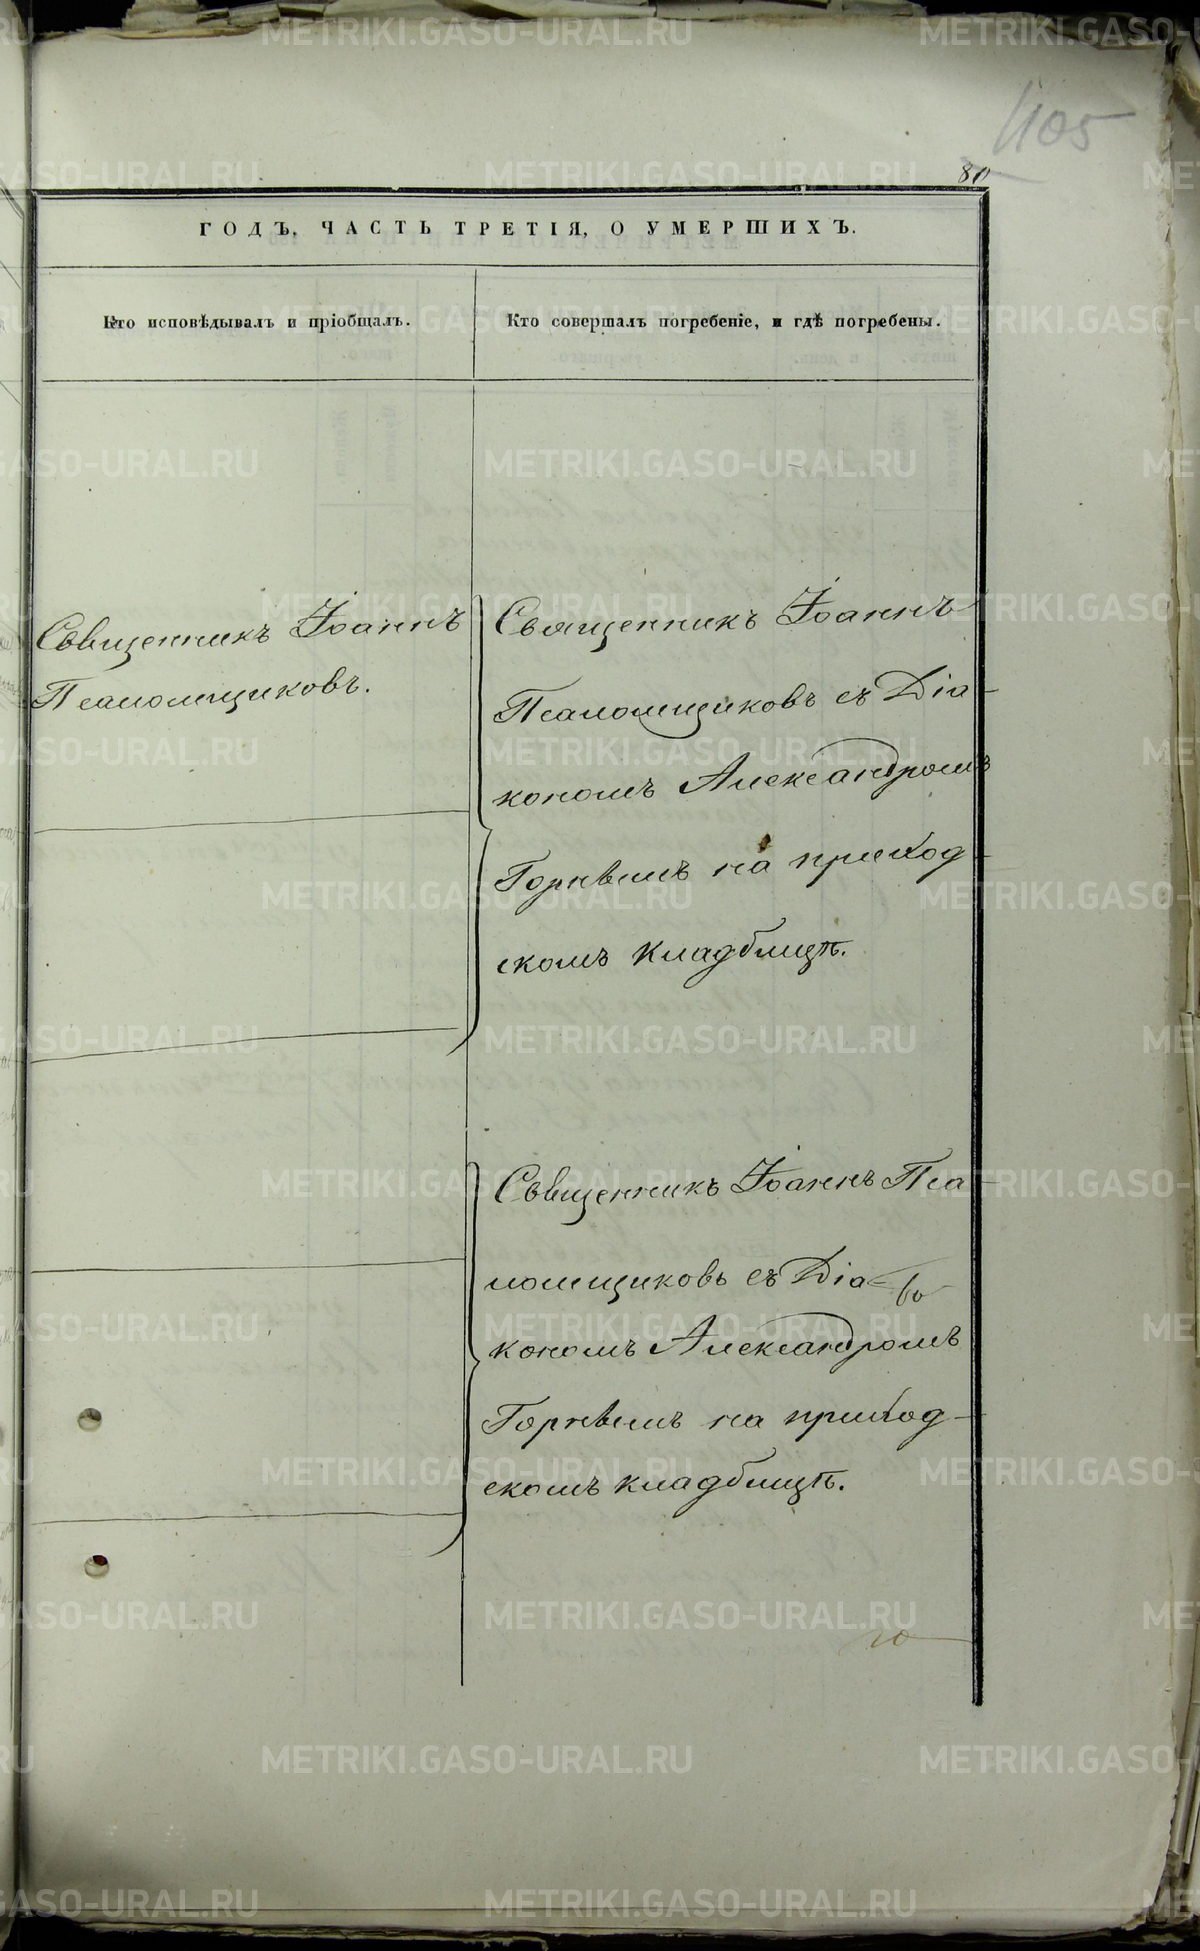 405
80
ГОДЪ, ЧАСТЬ ТРЕТІЯ, О УМЕРШИХЪ.
Кто исповѣдывалъ и пріобщалъ.
Кто совершалъ погребеніе, и гдѣ погребены.
Священникъ Іоаннъ
Псаломщиковъ.
Священникъ Іоаннъ
Псаломщиковъ съ Діа-
кономъ Александромъ
Горнвымъ на приход-
скомъ кладбищѣ.
Священникъ Іоаннъ Пса-
ломщиковъ съ Діа-
кономъ Александромъ
Горнвымъ на приход-
скомъ кладбищѣ.
METRIKI.GASO-URAL.RU